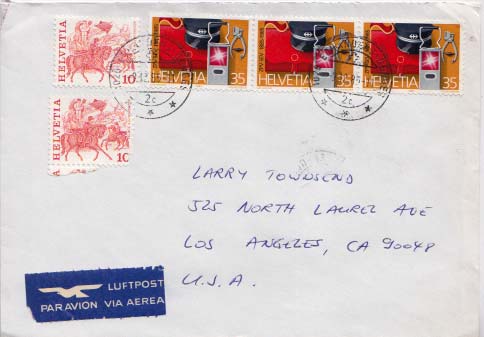 HELVETIA 10
HELVETIA 35
HELVETIA 35
HELVETIA 35
HELVETIA 10
2c
2c
LARRY TOWNSEND
525 NORTH LAUREL AVE
LOS ANGELES, CA 90048
U.S.A.
LUFTPOST
PAR AVION VIA AEREA